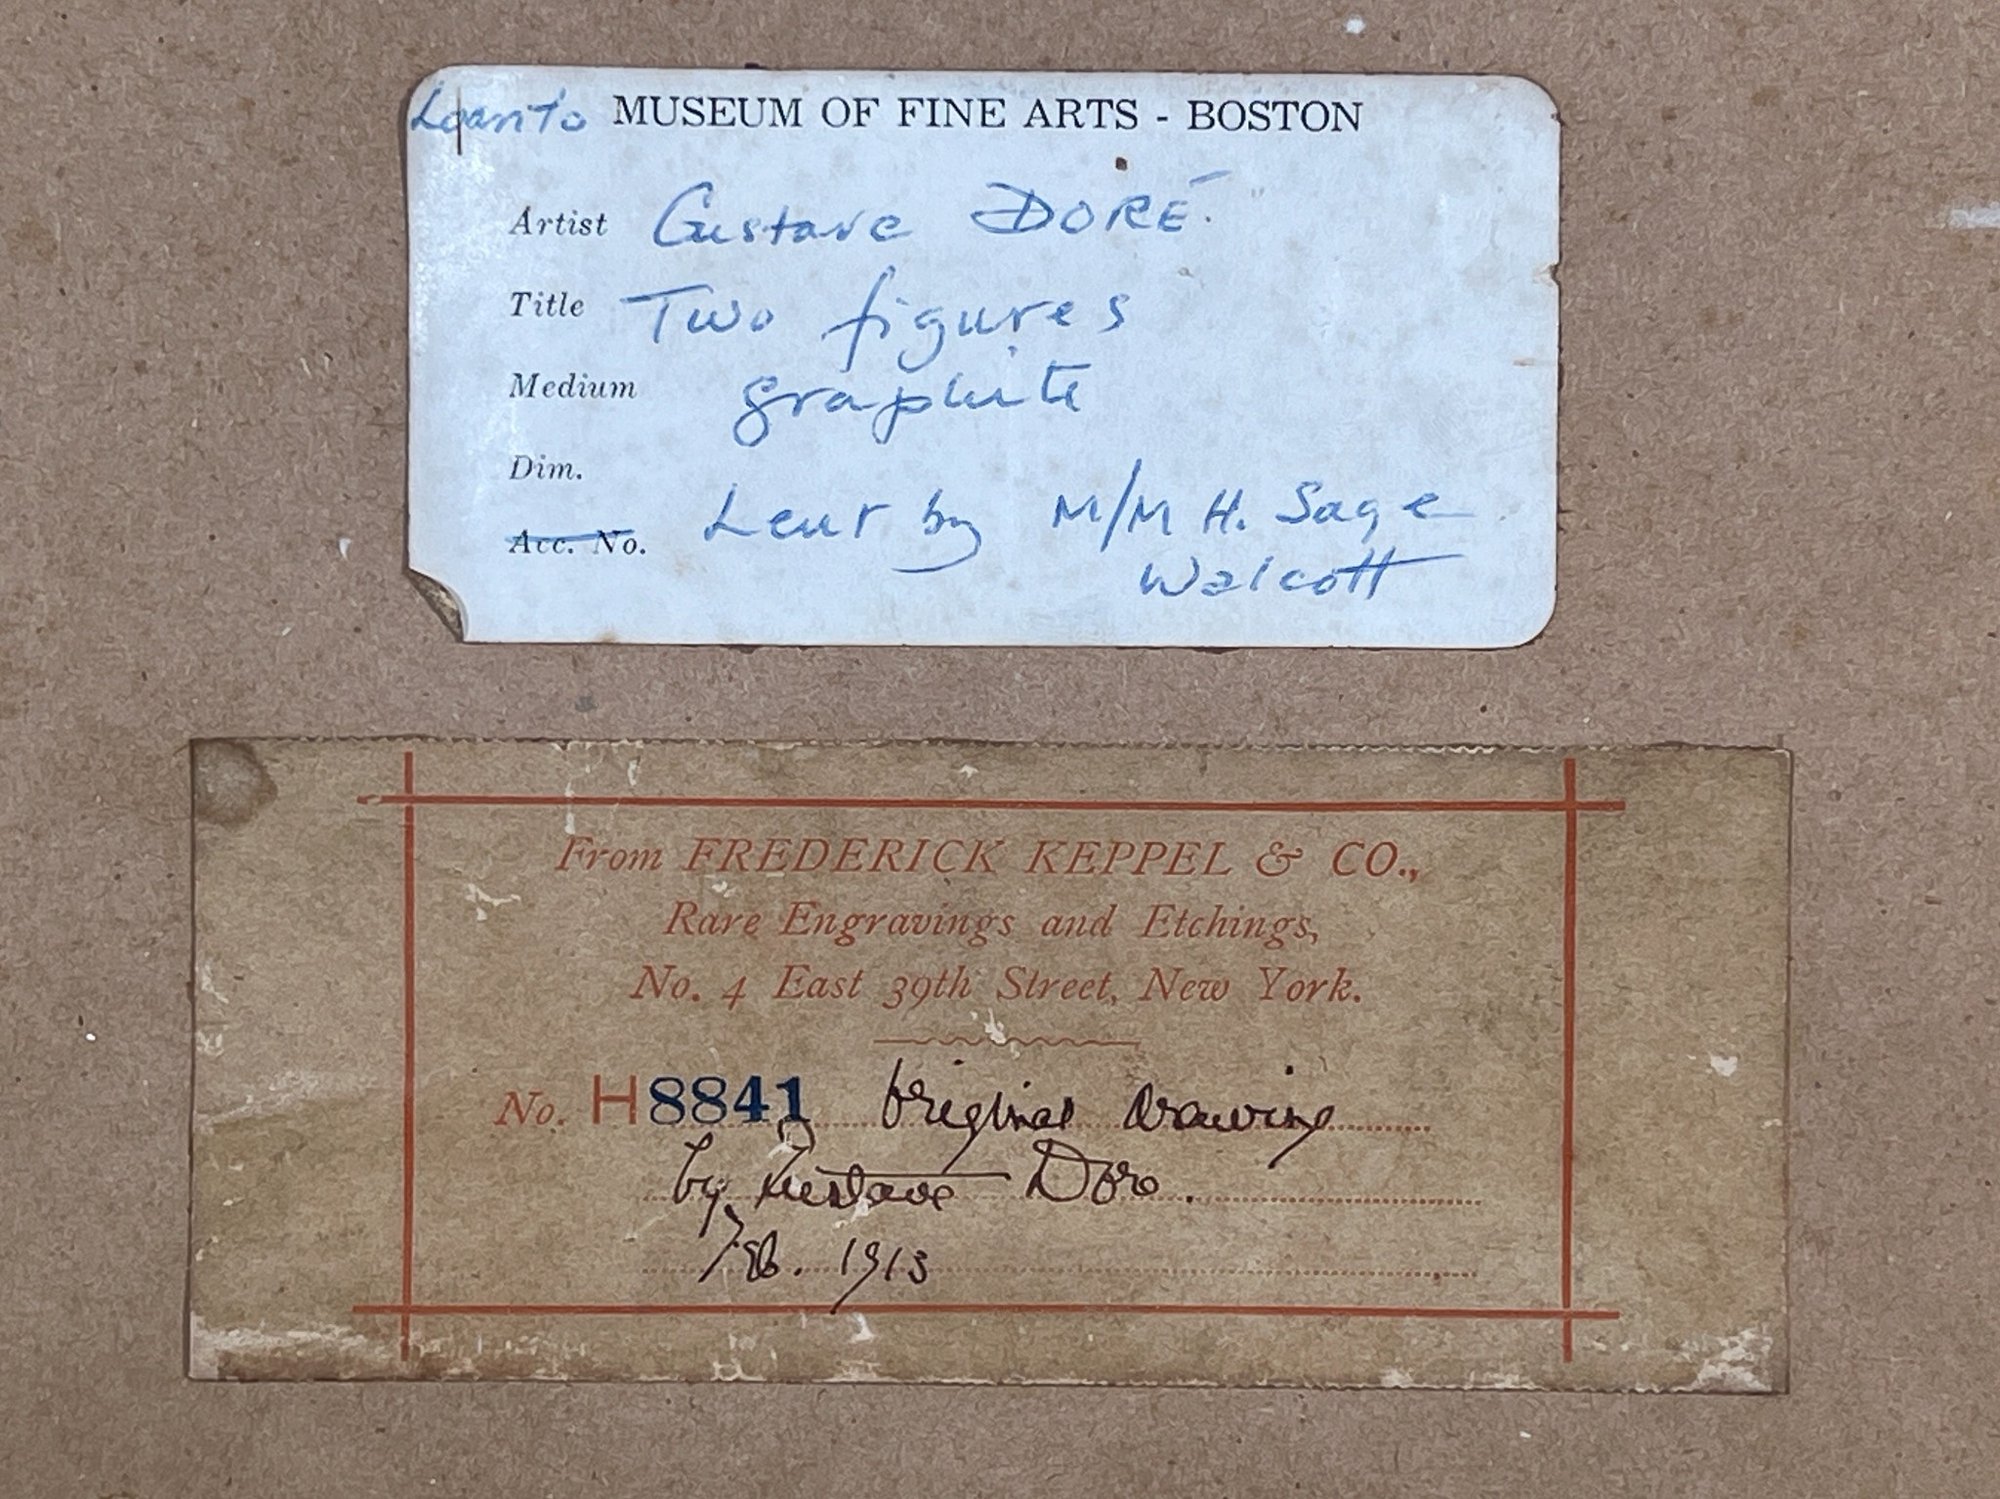 Loan to MUSEUM OF FINE ARTS - BOSTON
Artist Gustave DORÉ.
Title Two figures
Medium graphite
Dim.
Acc. No. Lent by M/M H. Sage
Walcott
From FREDERICK KEPPEL & CO.,
Rare Engravings and Etchings,
No. 4 East 39th Street, New York.
No. H8841 Original Drawing
by Gustave Dore.
Feb. 1913